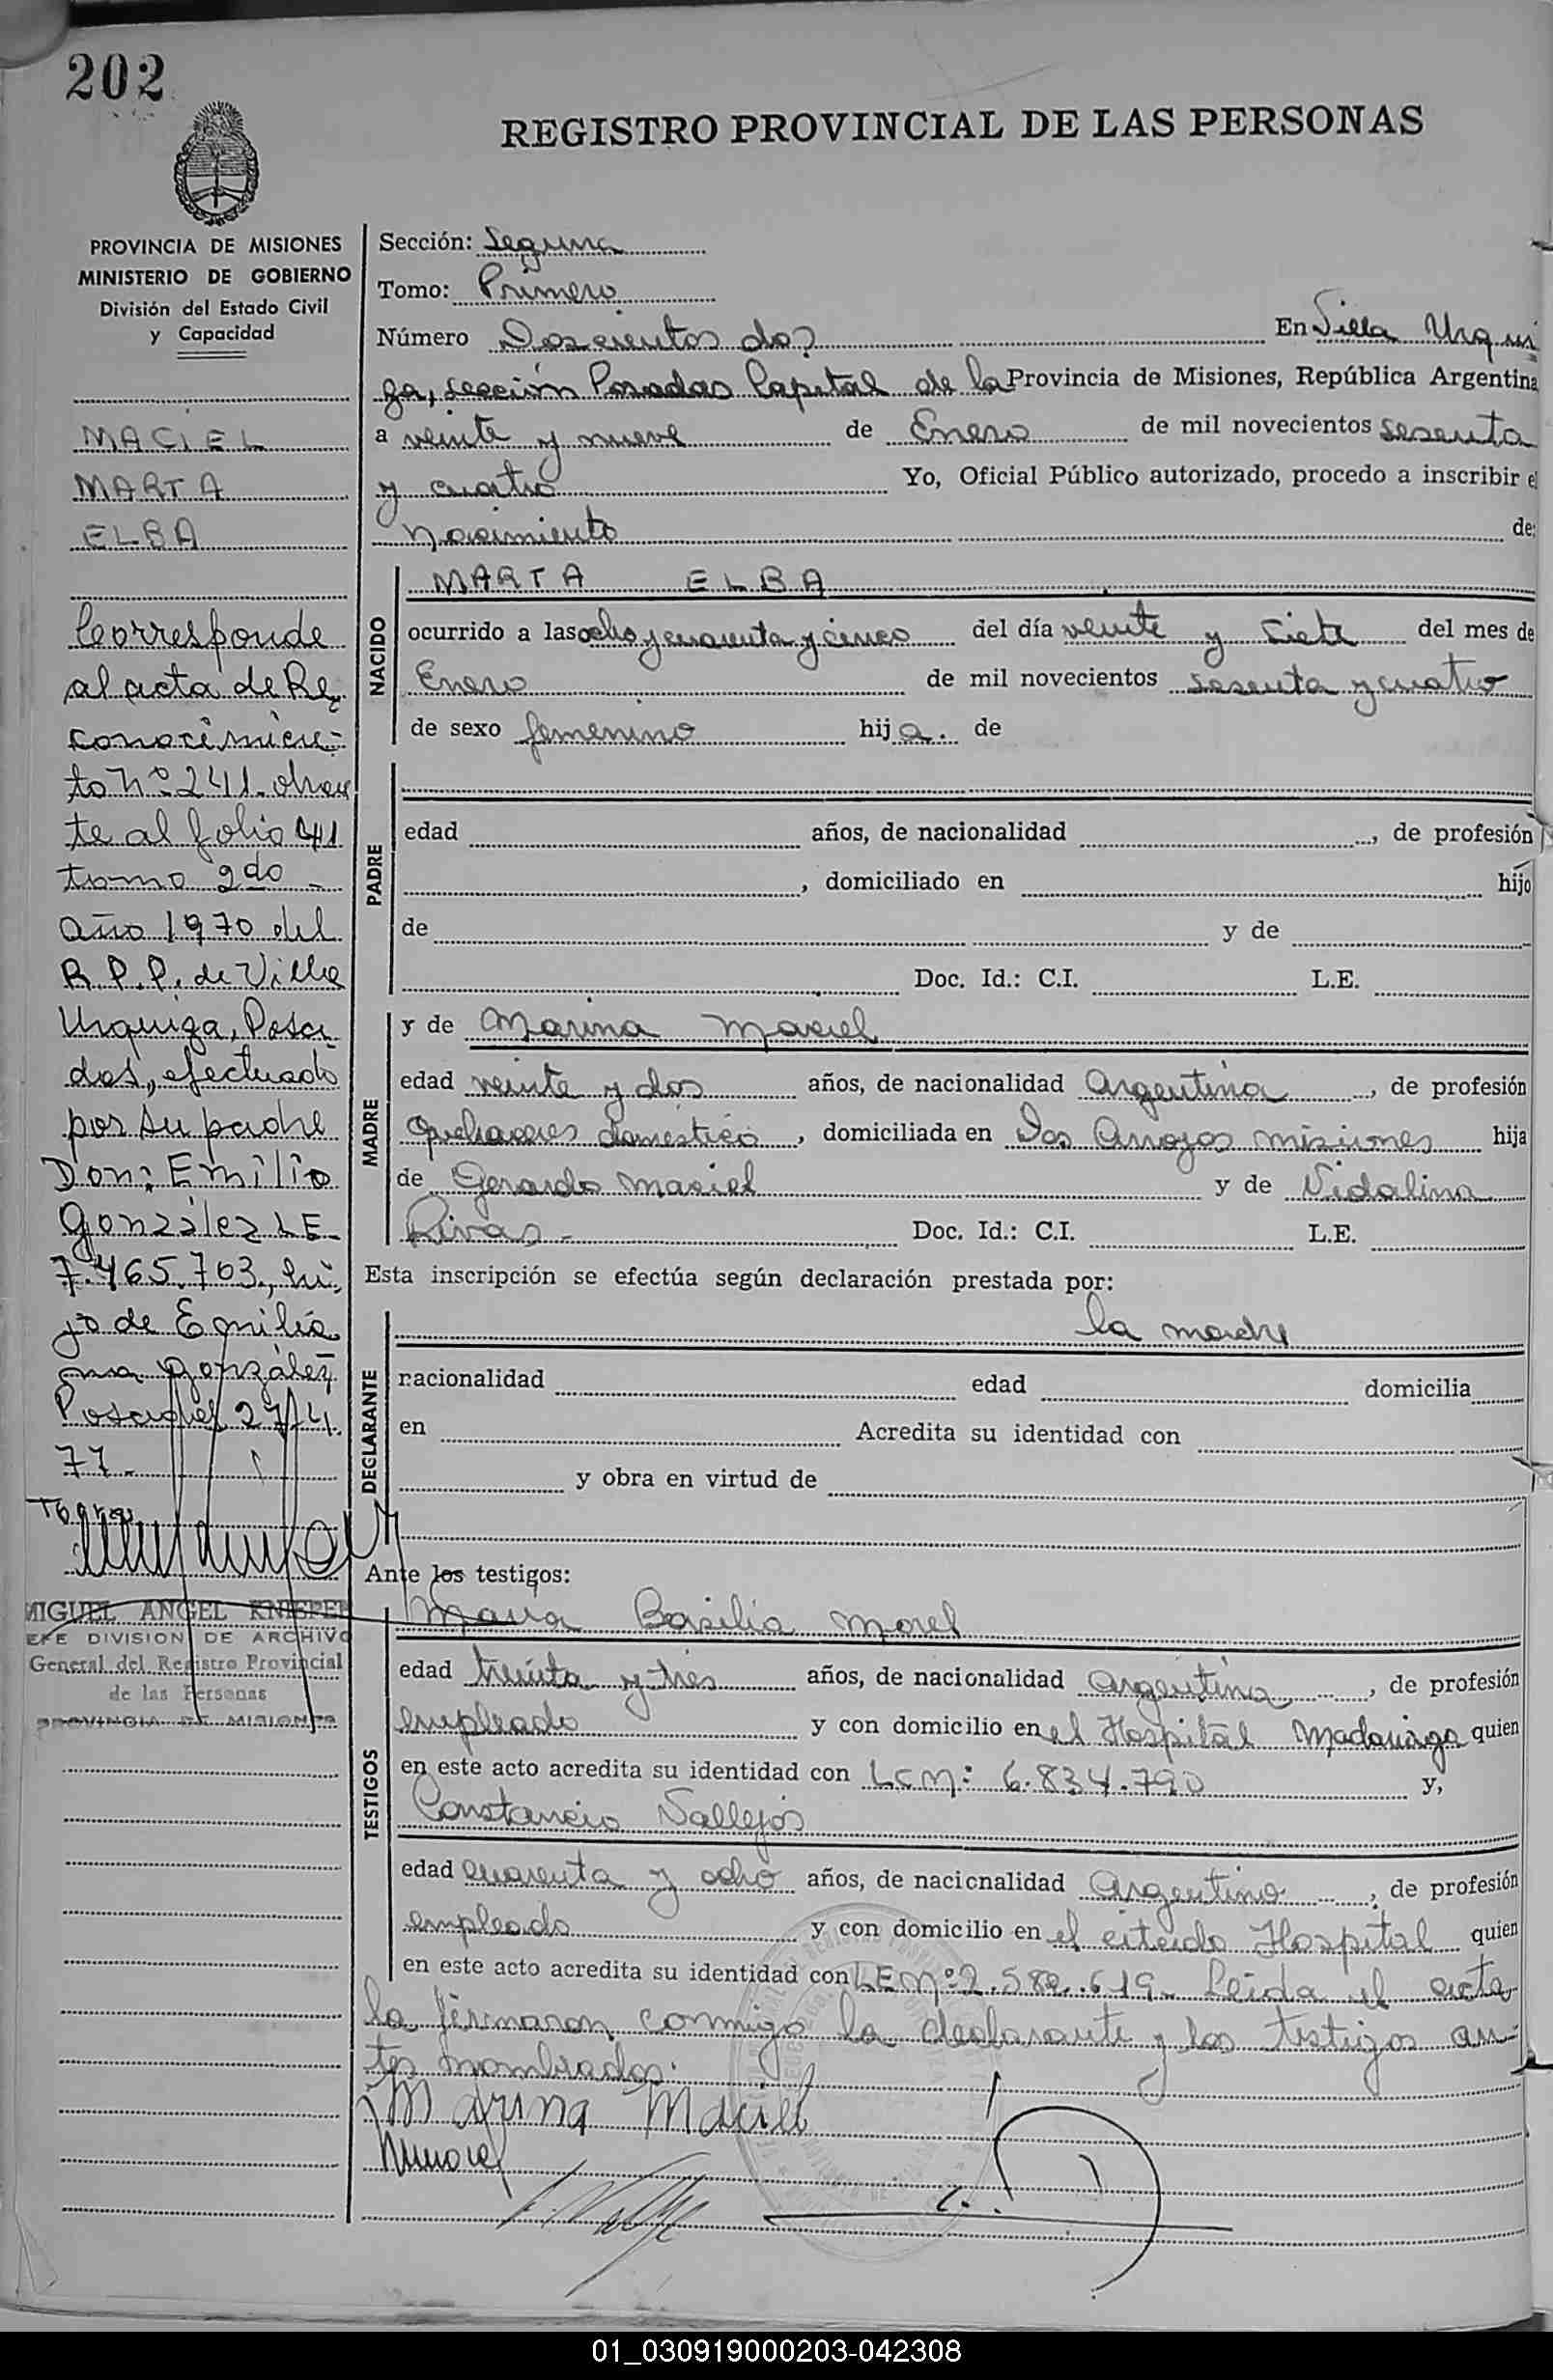 202
REGISTRO PROVINCIAL DE LAS PERSONAS
PROVINCIA DE MISIONES
MINISTERIO DE GOBIERNO
División del Estado Civil
y Capacidad
MACIEL
MARTA
ELBA
Corresponde
al acta de Re
conocimien-
to Nº 241. obran
te al folio 41
tomo 2do -
año 1970 del
R.P.P. de Villa
Urquiza, Posa
das, efectuado
por su padre
Don: Emilio
González LE
7.465.763., hi
jo de Emilia
na González
Posadas 27/4.
77.-
MIGUEL ANGEL KNIEPER
JEFE DIVISION DE ARCHIVO
General del Registro Provincial
de las Personas
PROVINCIA DE MISIONES
Sección: Segunda
Tomo: Primero
Número Doscientos dos En Villa Urqui
za, sección Posadas Capital de la Provincia de Misiones, República Argentina
a veinte y nueve de Enero de mil novecientos sesenta
y cuatro Yo, Oficial Público autorizado, procedo a inscribir el
Nacimiento de:
NACIDO
MARTA ELBA
ocurrido a las ocho y cuarenta y cinco del día veinte y siete del mes de
Enero de mil novecientos sesenta y cuatro
de sexo femenino hija. de
PADRE
edad años, de nacionalidad , de profesión
, domiciliado en hijo
de y de
Doc. Id.: C.I. L.E.
MADRE
y de Marina Maciel
edad veinte y dos años, de nacionalidad Argentina , de profesión
Quehaceres doméstico , domiciliada en Dos Arroyos misiones hija
de Gerardo Maciel y de Vidalina
Rivas - Doc. Id.: C.I. L.E.
Esta inscripción se efectúa según declaración prestada por:
DECLARANTE
la madre
nacionalidad edad domicilia
en Acredita su identidad con
y obra en virtud de
Ante los testigos:
TESTIGOS
Maria Basilia Morel
edad treinta y tres años, de nacionalidad Argentina , de profesión
empleada y con domicilio en el Hospital Madariaga quien
en este acto acredita su identidad con LCM: 6.834.790 y,
Constancio Vallejos
edad cuarenta y ocho años, de nacionalidad Argentino , de profesión
empleado y con domicilio en el citado Hospital quien
en este acto acredita su identidad con LE Nº 2.582.619- Leida el acta
la firmaron conmigo la declarante y los testigos an-
tes nombrados.
Marina Maciel
01_030919000203-042308